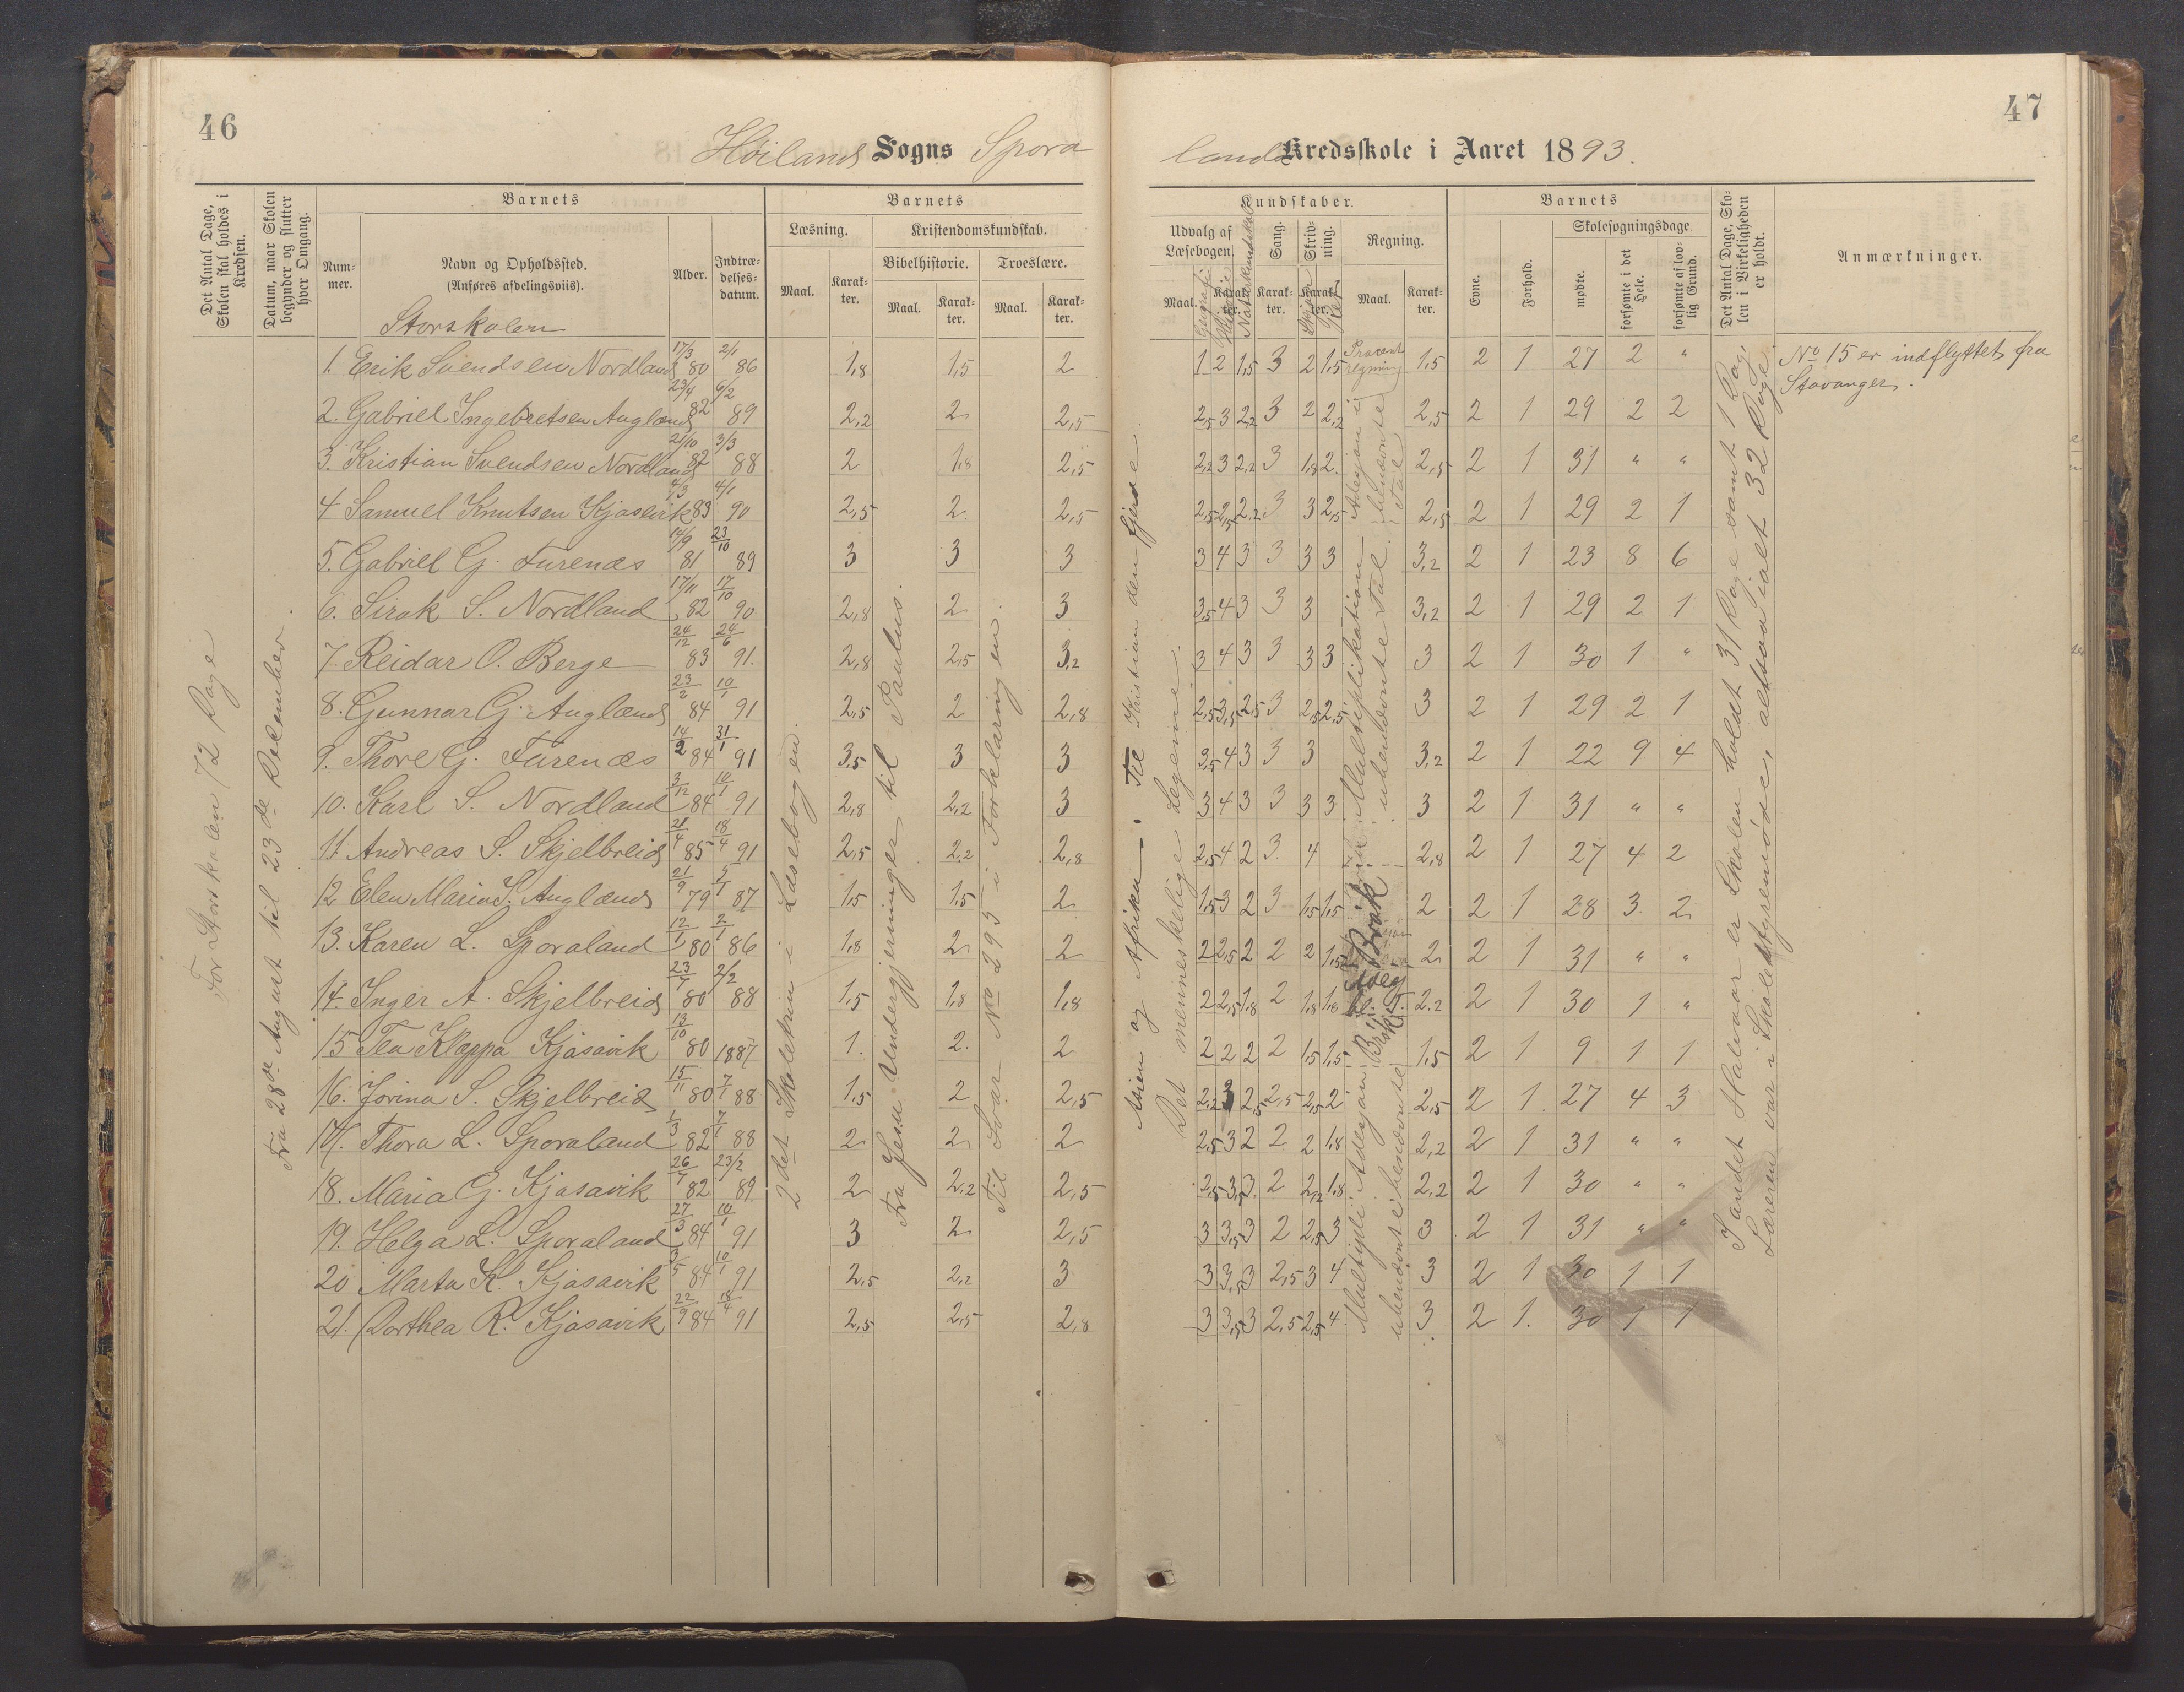 46
Høilands Sogns Spora
Det Antal Dage, Skolen skal holdes i Kredsen.
Datum, naar Skolen begynder og slutter hver Omgang.
Barnets
Barnets
Læsning.
Kristendomskundskab.
Num-mer.
Navn og Opholdssted.
(Anføres afdelingsviis).
Alder.
Indtræ-delses-datum.
Maal.
Karak-ter.
Bibelhistorie.
Troeslære.
Maal.
Karak-ter.
Maal.
Karak-ter.
Storskolen
For Storskolen 72 Dage
Fra 28de August til 23de December.
2det Skoletrin i Læsebogen.
Fra Jesu Undergjerninger til Paulus.
Til Svar No 295 i Forklaringen.
1. Erik Svendsen Nordland 17/3 80 2/1 86 1,8 1,5 2
2. Gabriel Ingebretsen Augland 23/4 82 6/2 89 2,2 2 2,5
3. Kristian Svendsen Nordland 21/10 82 3/3 88 2 1,8 2,5
4 Samuel Knutsen Kjosavik 4/3 83 4/1 90 2,5 2. 2,5
5. Gabriel G. Furenæs 14/9 81 23/10 89 3 3 3
6. Sirak S. Nordland 17/11 82 17/10 90 2,8 2 3
7. Reidar O. Berge 24/12 83 24/6 91. 2,8 2,5 3,2
8. Gunnar G. Auglænd 23/2 84 10/1 91 2,5 2 2,8
9. Thore G. Furenæs 14/2 84 31/1 91 3,5 3 3
10. Karl S. Nordland 3/12 84 10/1 91 2,8 2,2 3
11 Andreas S. Skjelbreid 21/4 85 18/4 91 2,5 2,2 2,8
12 Elen Maria S. Auglænd 21/9 79 5/1 87 1,5 1,5 2
13. Karen L. Sporaland 12/1 80 2/1 86 1,8 2 2
14. Inger A. Skjelbreid 23/4 80 2/2 88 1,5 1,8 1,8
15 Tea Kleppa Kjosavik 13/10 80 1887 1. 2. 2
16. Jorina S. Skjelbreid 15/11 80 7/1 88 1,5 2 2,5
17. Thora L. Sporaland 1/3 82 7/1 88 2 2 2
18. Maria G. Kjosavik 26/7 82 23/2 89. 2 2,2 2,5
19. Helga L. Sporaland 27/3 84 10/1 91 3 2 2,5
20 Marta K. Kjosavik 3/5 84 10/1 91 2,5 2,2 3
21. Dorthea R. Kjosavik 22/9 84 18/4 91 2,5 2,5 2,8
47
lands Kredsskole i Aaret 1893.
Kundskaber.
Barnets
Udvalg af Læsebogen.
Sang.
Skriv-ning.
Regning.
Evne.
Forhold.
Skolesøgningsdage
mødte.
forsømte i det Hele.
forsømte af lov-lig Grund.
Det Antal Dage, Sko-len i Virkeligheden er holdt.
Anmærkninger.
Maal.
Geografi
Historie
Naturkundskab
Karak-ter.
Karak-ter.
Karak-ter.
Maal.
Karak-ter.
Asien og Afrika – Til Kristian den fjerde.
Det menneskelige Legeme.
Procent regning
Multiplikation
ubenævnte Tal.
Addisjon i benævnte Tal
Brøk
I andet Halvaar er Skolen holdt 31 Dage samt 1 Dag,
Læreren var i Skolestyremøde, altsaa ialt 32 Dage.
No 15 er indflyttet fra
Stavanger.
1 2 1,5 3 2 1,5 1,5 2 1 27 2 "
2,5 3 2,2 3 2 2,2 2,5 2 1 29 2 2
2,2 3 2,2 3 1,8 2. 2,5 2 1 31 " "
2,5 2,5 2,2 3 3 2,5 2,5 2 1 29 2 1
3 4 3 3 3 3 3,2 2 1 23 8 6
3,5 4 3 3 3 3,2 2 1 29 2 1
3 4 3 3 3 3 3 2 1 30 1 "
2,5 3,5 2,5 3 2,5 2,5 3 2 1 29 2 1
3,5 4 3 3 3 3,2 2 1 22 9 4
3 4 3 3 3 3 3 2 1 31 " "
2,5 4 2 3. 4 2,8 2 1 27 4 2
1,5 3 2 3 1,5 1,5 2 2 1 28 3 2
2 2,5 2 2 2 1,5 2 2 1 31 " "
2 2,5 1,8 2 1,8 1,8 2,2 2 1 30 1 "
2 2 2 2 1,5 1,5 1,5 2 1 9 1 1
2,2 3 2,5 2,5 2,5 2 2,5 2 1. 27 4 3
2,5 3 2 2 2 1,8 2,2 2 1 31 " "
2,5 3,5 3. 2 2,2 1,8 2,2 2 1 30 " "
3 3,5 3 2 2,5 3 3 2 1 31 " "
3 3,5 3 2,5 3 4 3 2 1 30 1 1
3 3,5 3 2,5 2,5 4 3 2 1. 30 1 1